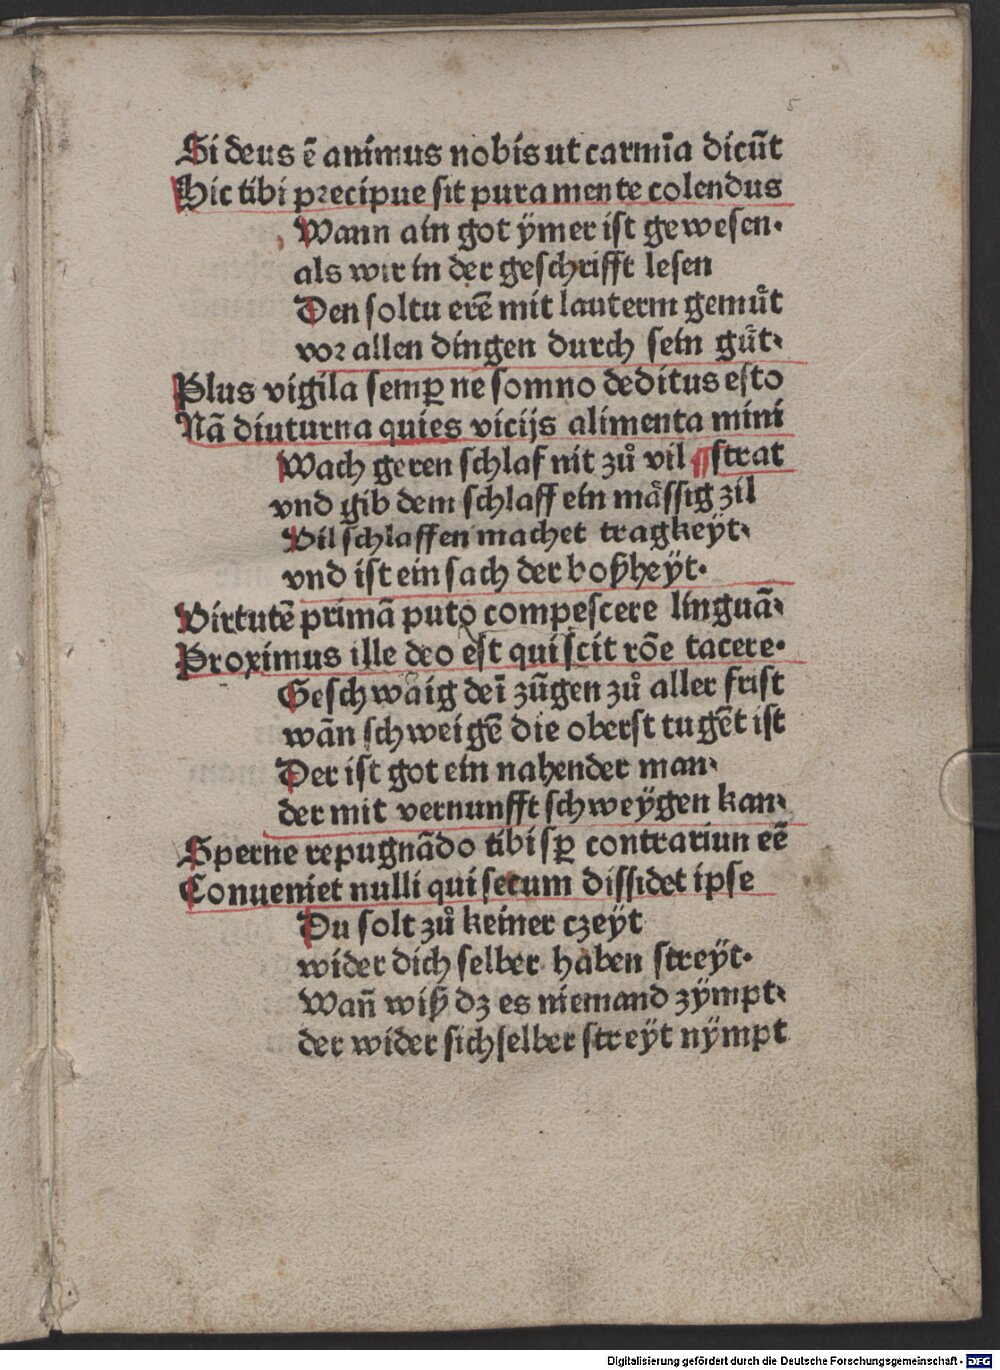 5
Si deus ē animus nobis ut carmīa dicūt
Hic tibi precipue sit pura mente colendus
Wann ain got ÿmer ist gewesen.
als wir in der geschrifft lesen
Den soltu erē mit lauterm gemuͤt
vor allen dingen durch sein guͤt.
Plus vigila semꝑ ne somno deditus esto
Nā diuturna quies vicijs alimenta mini
Wach geren schlaf nit zů vil ¶ strat
vnd gib dem schlaff ein maͤssig zil
Vil schlaffen machet tragkeÿt.
vnd ist ein sach der boßheÿt.
Virtutē primā puto compescere linguā.
Proximus ille deo est qui scit rōe tacere.
Geschwaͤig deī zūgen zů aller frist
wān schweigē die oberst tugēt ist
Der ist got ein nahender man.
der mit vernunfft schweÿgen kan.
Sperne repugnādo tibi sꝑ contrariun eē
Conueniet nulli qui secum dissidet ipse
Du solt zů keiner czeÿt
wider dich selber haben streÿt.
Wañ wiß dz es niemand zÿmpt.
der wider sich selber streÿt nÿmpt
Digitalisierung gefördert durch die Deutsche Forschungsgemeinschaft - DFG